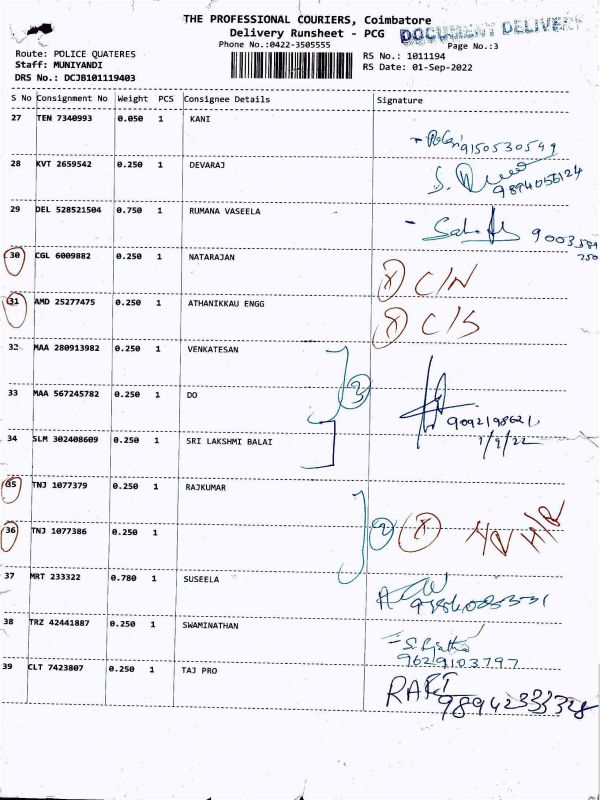 THE PROFESSIONAL COURIERS, Coimbatore
Delivery Runsheet - PCG
DOCUMENT DELIVERY
Phone No.:0422-3505555
Page No.:3
Route: POLICE QUATERES
RS No.: 1011194
Staff: MUNIYANDI
RS Date: 01-Sep-2022
DRS No.: DCJB101119403
S No Consignment No Weight PCS Consignee Details Signature
27 TEN 7340993 0.050 1 KANI
9150530549
28 KVT 2659542 0.250 1 DEVARAJ
9894056124
29 DEL 528521504 0.750 1 RUMANA VASEELA
9003581
250
30 CGL 6009882 0.250 1 NATARAJAN
X C/N
31 AMD 25277475 0.250 1 ATHANIKKAU ENGG
X C/S
32 MAA 280913982 0.250 1 VENKATESAN
3
33 MAA 567245782 0.250 1 DO
1/9/22
34 SLM 302408609 0.250 1 SRI LAKSHMI BALAI
35 TNJ 1077379 0.250 1 RAJKUMAR
2 X
36 TNJ 1077386 0.250 1
37 MRT 233322 0.780 1 SUSEELA
38 TRZ 42441887 0.250 1 SWAMINATHAN
9629103797
39 CLT 7423807 0.250 1 TAJ PRO